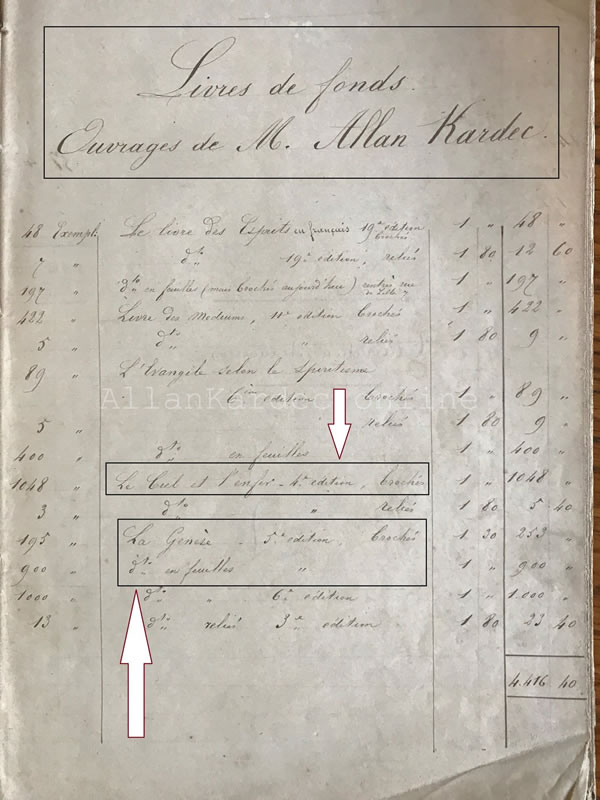 Livres de fonds.
Ouvrages de M. Allan Kardec.
48 Exempl. Le livre des Esprits en français 19e edition Brochés 1 " 48 "
7 " dto " 19e edition, reliés 1 80 12 60
197 " dto en feuilles (mais Brochés aujourd'hui) 1 " 197 "
422 " Livre des Mediums, 11e edition Brochés 1 " 422 "
5 " dto " " reliés 1 80 9 "
89 " L'Evangile selon le spiritisme
edition Brochés 1 " 89 "
5 " " reliés 1 80 9 "
AllanKardec.online
400 " dto " en feuilles 1 " 400 "
1048 " Le Ciel et l'enfer - 4e edition, Brochés 1 " 1048 "
3 " dto " " reliés 1 80 5 40
195 " La Genèse - 5e edition. Brochés 1 30 253 "
900 " dto " en feuilles " 1 " 900 "
1000 " dto " " 6e edition 1 " 1.000 "
13 " dto " reliés 3e edition 1 80 23 40
4.416 40